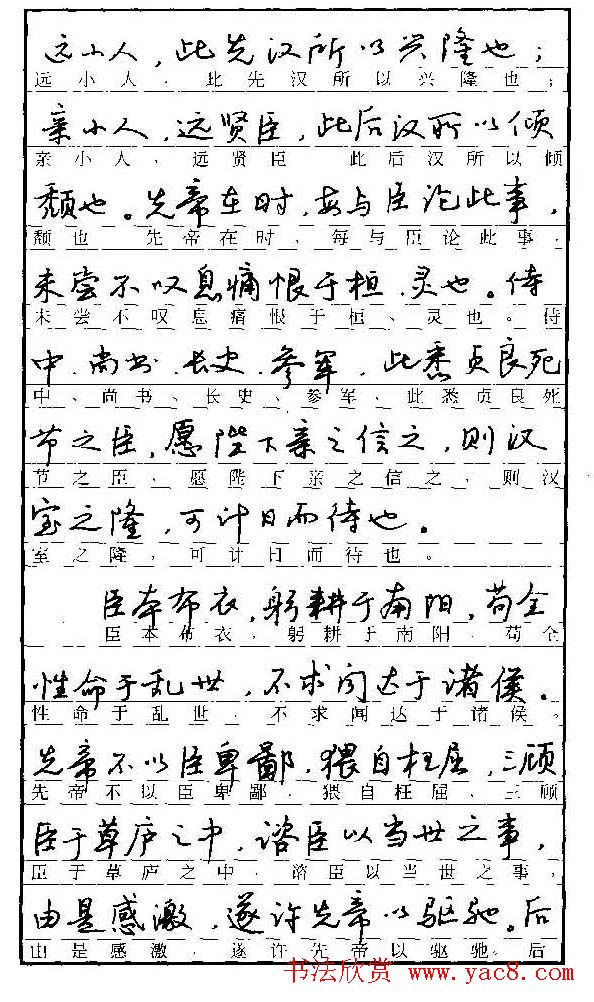 远小人，此先汉所以兴隆也；
远小人，此先汉所以兴隆也；
亲小人，远贤臣，此后汉所以倾
亲小人，远贤臣 此后汉所以倾
颓也。先帝在时，每与臣论此事，
颓也 先帝在时，每与臣论此事，
未尝不叹息痛恨于桓、灵也。侍
未尝不叹息痛恨于桓、灵也。侍
中、尚书、长史、参军，此悉贞良死
中、尚书、长史、参军、此悉贞良死
节之臣，愿陛下亲之信之，则汉
节之臣，愿陛下亲之信之，则汉
室之隆，可计日而待也。
室之隆，可计日而待也。
臣本布衣，躬耕于南阳，苟全
臣本布衣，躬耕于南阳，苟全
性命于乱世，不求闻达于诸侯。
性命于乱世，不求闻达于诸侯。
先帝不以臣卑鄙，猥自枉屈，三顾
先帝不以臣卑鄙，猥自枉屈、三顾
臣于草庐之中，谘臣以当世之事，
臣于草庐之中，谘臣以当世之事，
由是感激，遂许先帝以驱驰。后
由是感激，遂许先帝以驱驰。后
书法欣赏 www.yac8.com